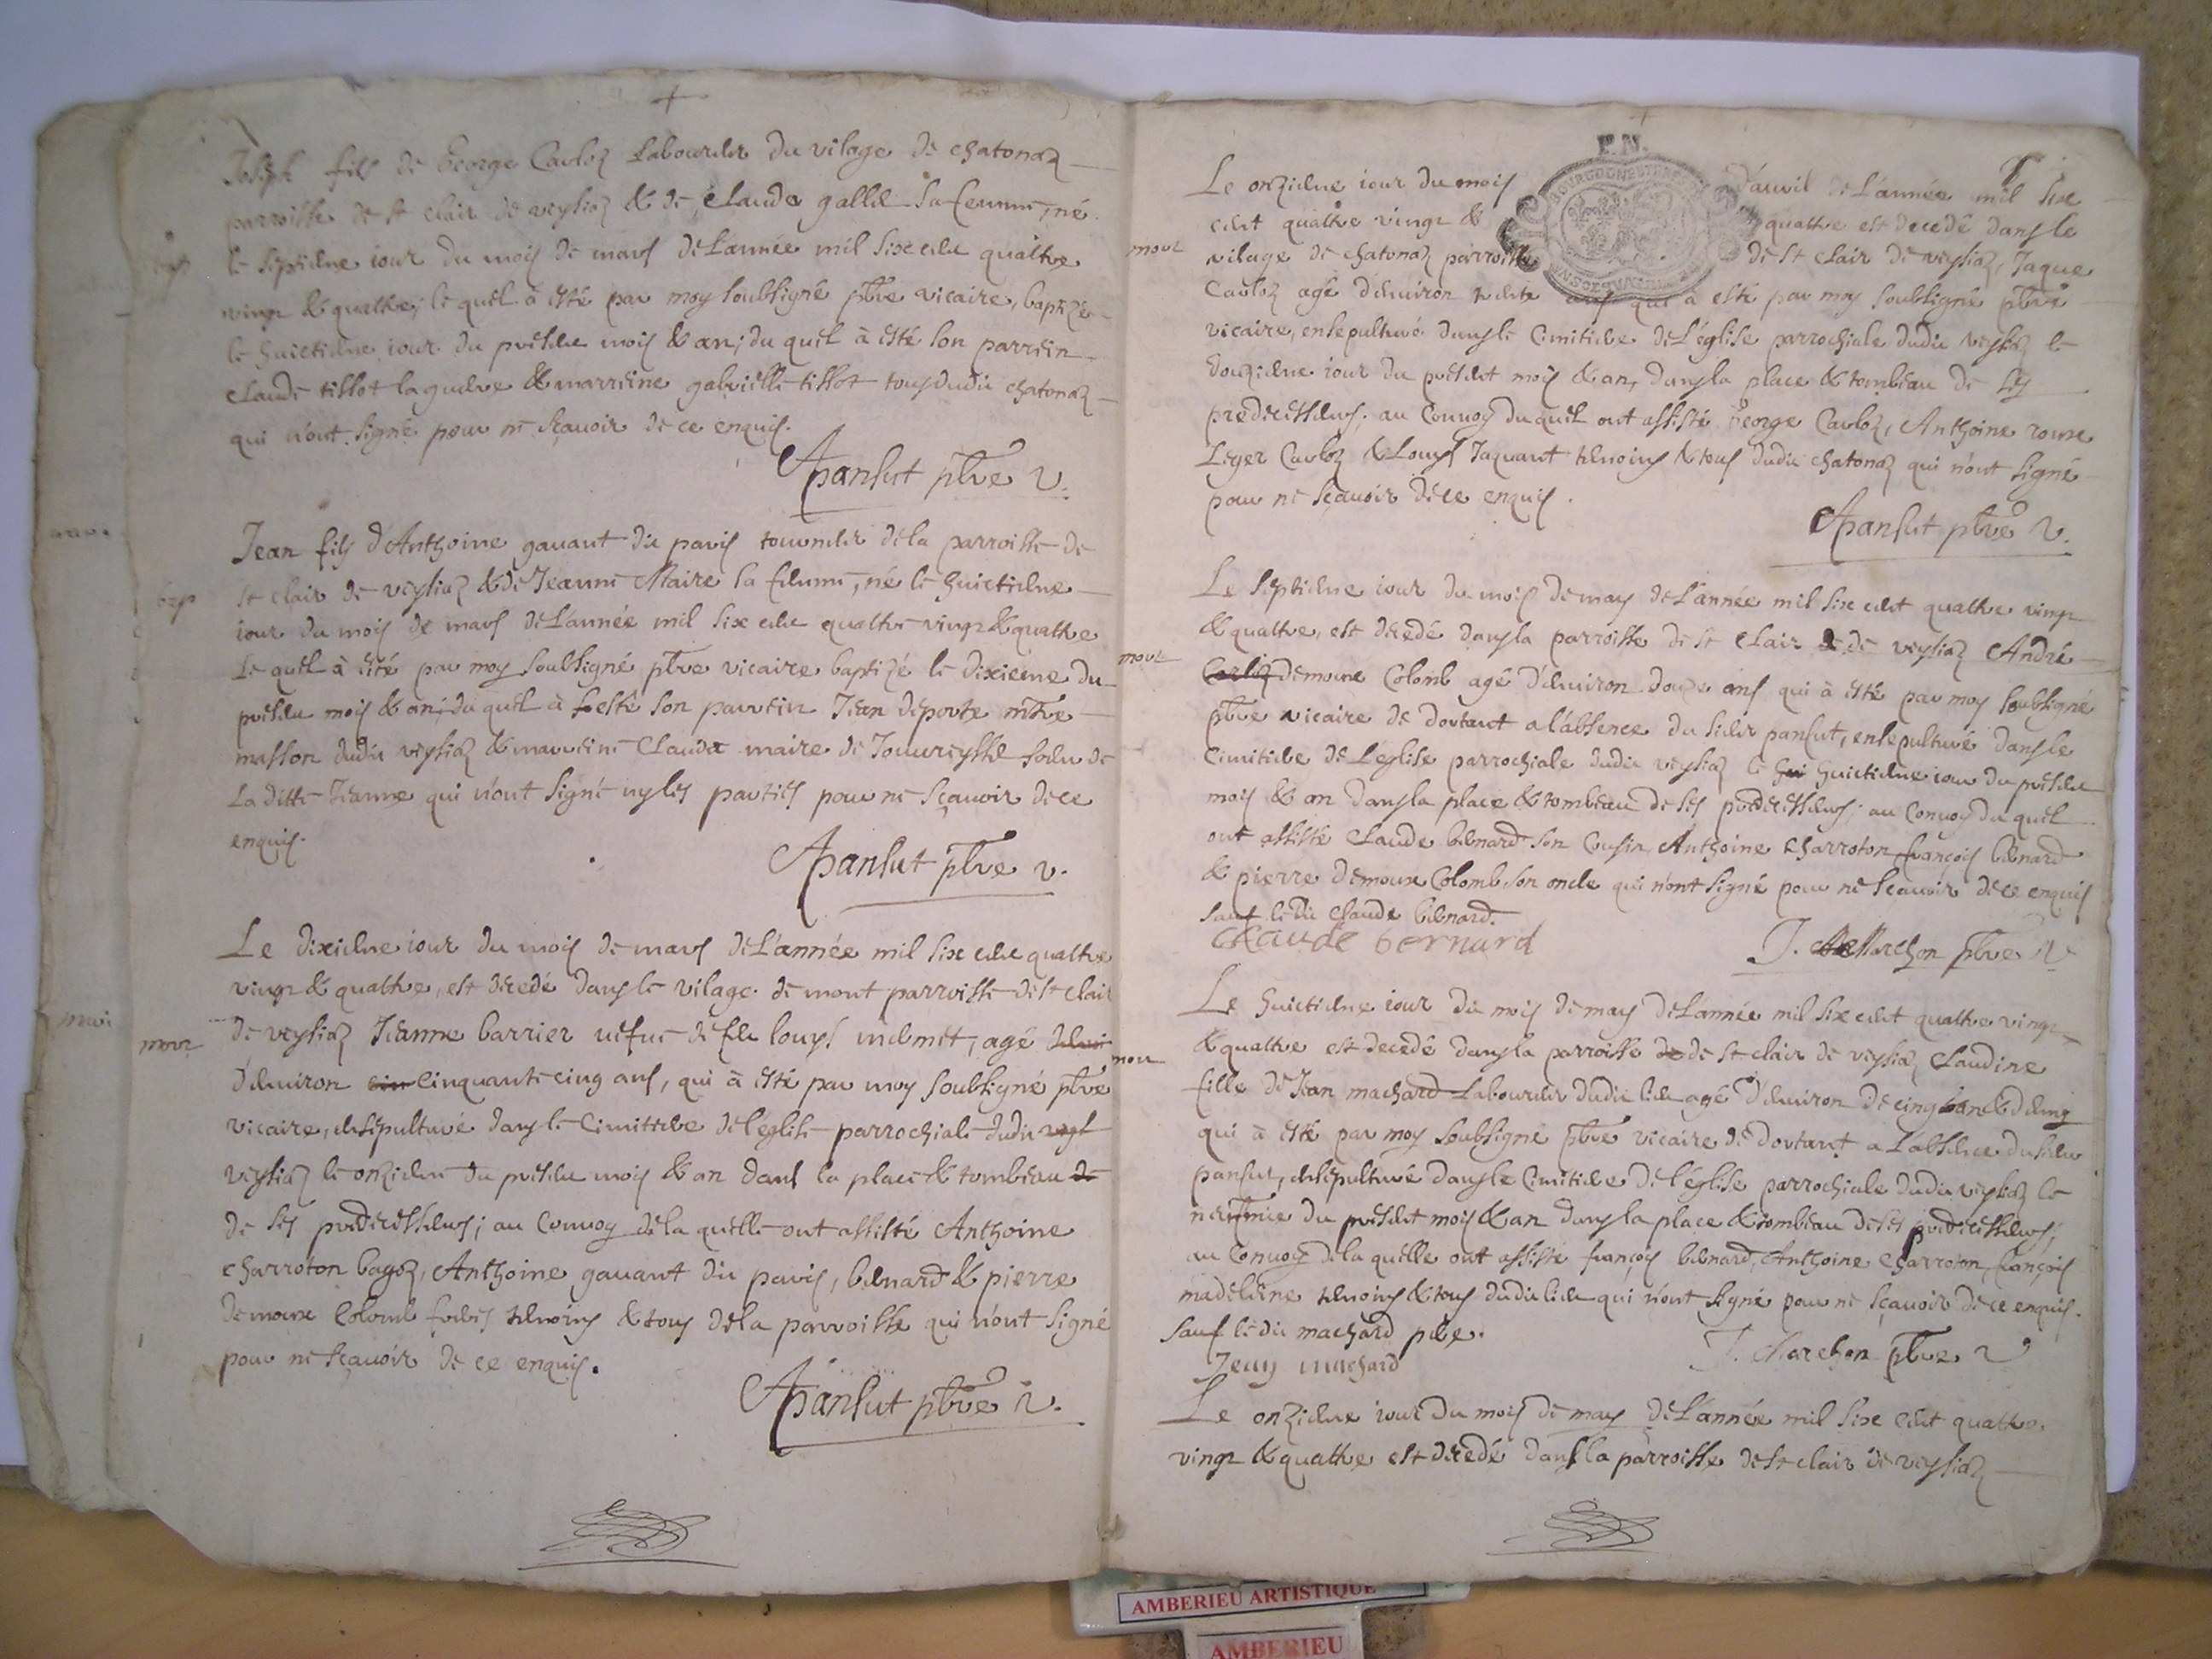 Joseph fils de George Carloz Laboureur du vilage de chatonaz
parroisse de st clair de veyziaz & de Clauda gallet sa femme, né
bap
le septieme iour du mois de mars de L'année mil six cent quattre
vingt & quattre, le quel à esté par moy soubsigné pbre vicaire, baptizé
le huictieme iour du present mois & an; du quel à esté son parrein
Claude tissot laguerre & marreine gabrielle tissot tous dudit chatonaz
qui n'ont signé pour ne sçavoir de ce enquis.
Pansut pbre v.
Jean fils d'Anthoine gauant dit paris tourneur de la parroisse de
bap
st clair de veyziaz & de Jeanne Maire sa femme, né le huictieme
iour du mois de mars de L'année mil six cent quattre vingt & quattre
le quel à esté par moy soubsigné pbre vicaire baptizé le dixieme du
present mois & an; du quel à esté son parrein Jean deporte mtre
masson dudit veyziaz & marreine Clauda maire de soeur de
La ditte Jeanne qui n'ont signé ny les parties pour ne sçavoir de ce
enquis.
Pansut pbre v.
Le dixieme iour du mois de mars de L'année mil six cent quattre
vingt & quattre, est decedé dans le vilage de mont parroisse de st clair
mort
de veyziaz Jeanne barrier vefue de feu louys , agé
d'enuiron cinquante cinq ans, qui à esté par moy soubsigné pbre
vicaire, ensepulturé dans le Cimittiere de l'eglise parrochiale dudit
veyziaz le onzieme du present mois & an dans la place & tombeau de
de ses predecesseurs; au Conuoy de la quelle ont assisté Anthoine
charroton bagoz, Anthoine gauant dit paris, bernard & pierre
demoure Colomb freres temoins & tous de la parroisse qui n'ont signé
pour ne sçauoir de ce enquis.
Pansut pbre v.
P.N.
Le onzieme iour du mois d'auril de L'année mil six
cent quattre vingt & quattre est decedé dans le
mort
vilage de chatonaz parroisse de st clair de veyziaz, Jaque
Carloz agé d'enuiron trente ans qui a esté par moy soubsigné pbre
vicaire, ensepulturé dans le Cimitiere de L'église parrochiale dudit veyziaz le
douzieme iour du present mois & an, dans la place & tombeau de ses
predecesseurs. au Conuoy du quel ont assisté George Carloz, Anthoine
Leger Carloz & Louys Jaquant temoins & tous dudit chatonaz qui n'ont signé
pour ne sçauoir de ce enquis.
Pansut pbre v.
Le septieme iour du mois de may de L'année mil six cent quattre vingt
& quattre, est decedé dans la parroisse de st clair de de veyziaz André
mort
Carloz demoure Colomb agé d'enuiron douze ans qui à esté par moy soubsigné
pbre vicaire de dortant a l'absence du sieur pansut, ensepulturé dans le
Cimitiere de L'eglise parrochiale dudit veyziaz le hui huictieme iour du present
mois & an dans la place & tombeau de ses predecesseurs; au Conuoy du quel
ont assisté Claude bernard son Cousin, Anthoine Charroton, françois bernard
& pierre demoure Colomb son oncle qui n'ont signé pour ne sçauoir de ce enquis
sauf le dit Claude bernard.
claude bernard
J. Marchon pbre v
Le huictieme iour du mois de may de L'année mil six cent quattre vingt
mort
& quattre est decedé dans la parroisse de de st clair de veyziaz Claudine
fille de Jean machard Laboureur dudit lieu agé d'enuiron de cinq
qui à esté par moy soubsigné pbre vicaire de dortant a L'absence du sieur
pansut, ensepulturé dans le Cimitiere de l'église parrochiale dudit veyziaz le
neufieme du present mois & an dans la place & tombeau de ses predecesseurs;
au Conuoy de la quelle ont assisté françois bernard, Anthoine Charroton, françois
madeleine temoins & tous dudit lieu qui n'ont signé pour ne sçauoir de ce enquis.
sauf le dit machard pere.
Jean machard
J. Marchon pbre v
Le onzieme iour du mois de may de L'année mil six cent quattre
vingt & quattre est decedé dans la parroisse de st clair de veyziaz
AMBERIEU ARTISTIQUE
AMBERIEU